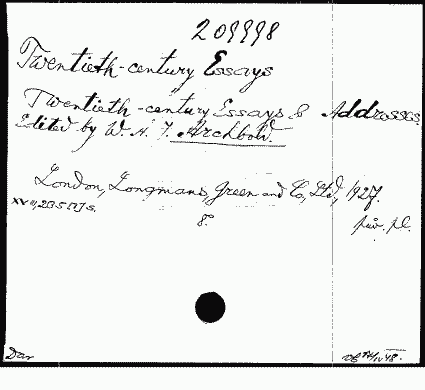 209998
Twentieth-century Essays
Twentieth-century Essays & Addresses.
Edited by W. A. J. Archbold.
London, Longmans, Green and Co, Ltd, 1927.
8°.
Dar